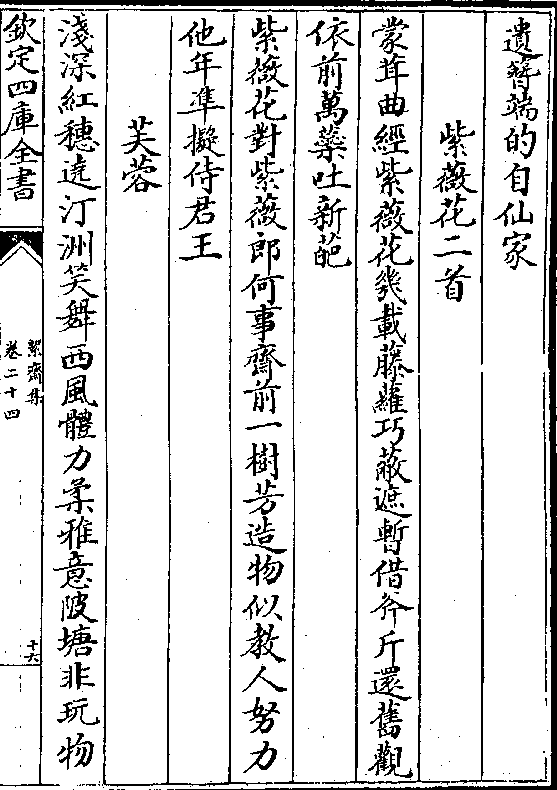 遺簪端的自仙家
紫薇花二首
蒙茸曲經紫薇花幾載藤蘿巧蔽遮暫借斧斤還舊觀
依前萬蘂吐新葩
紫薇花對紫薇郎何事齋前一樹芳造物似教人努力
他年準擬侍君王
芙蓉
淺深紅穗遶汀洲笑舞西風體力柔雅意陂塘非玩物
欽定四庫全書
絜齋集
卷二十四
十六